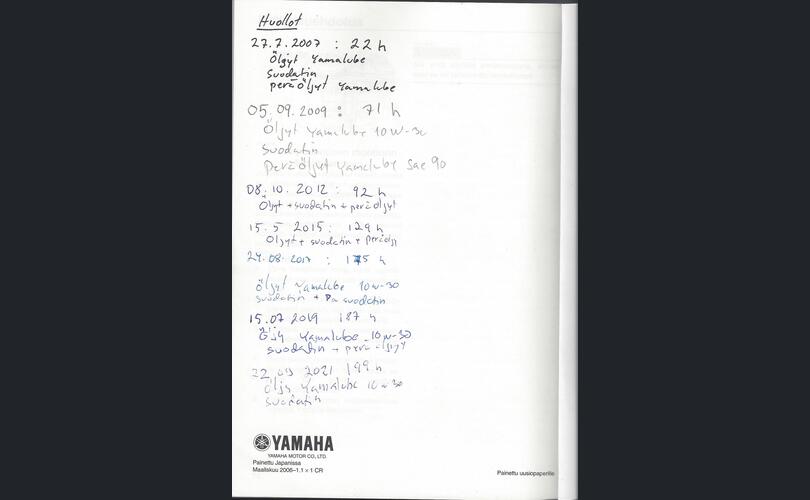 Huollot
27.7.2007 : 22 h
Öljyt Yamalube
suodatin
peräöljyt Yamalube
05.09.2009 : 71 h
Öljyt Yamalube 10W-30
suodatin
peräöljyt Yamalube Sae 90
08.10.2012 : 92 h
Öljyt + suodatin + peräöljyt
15.5 2015 : 129 h
Öljyt + suodatin + peräölj
24.08.2017 : 175 h
Öljyt Yamalube 10w-30
suodatin + Pa suodatin
15.07 2019 187 h
Öljy Yamalube 10w-30
suodatin + perä-öljyt
22 2021 199 h
öljy Yamalube 10w30
suodatin
YAMAHA
YAMAHA MOTOR CO., LTD.
Painettu Japanissa
Maaliskuu 2006–1.1 × 1 CR
Painettu uusiopaperille